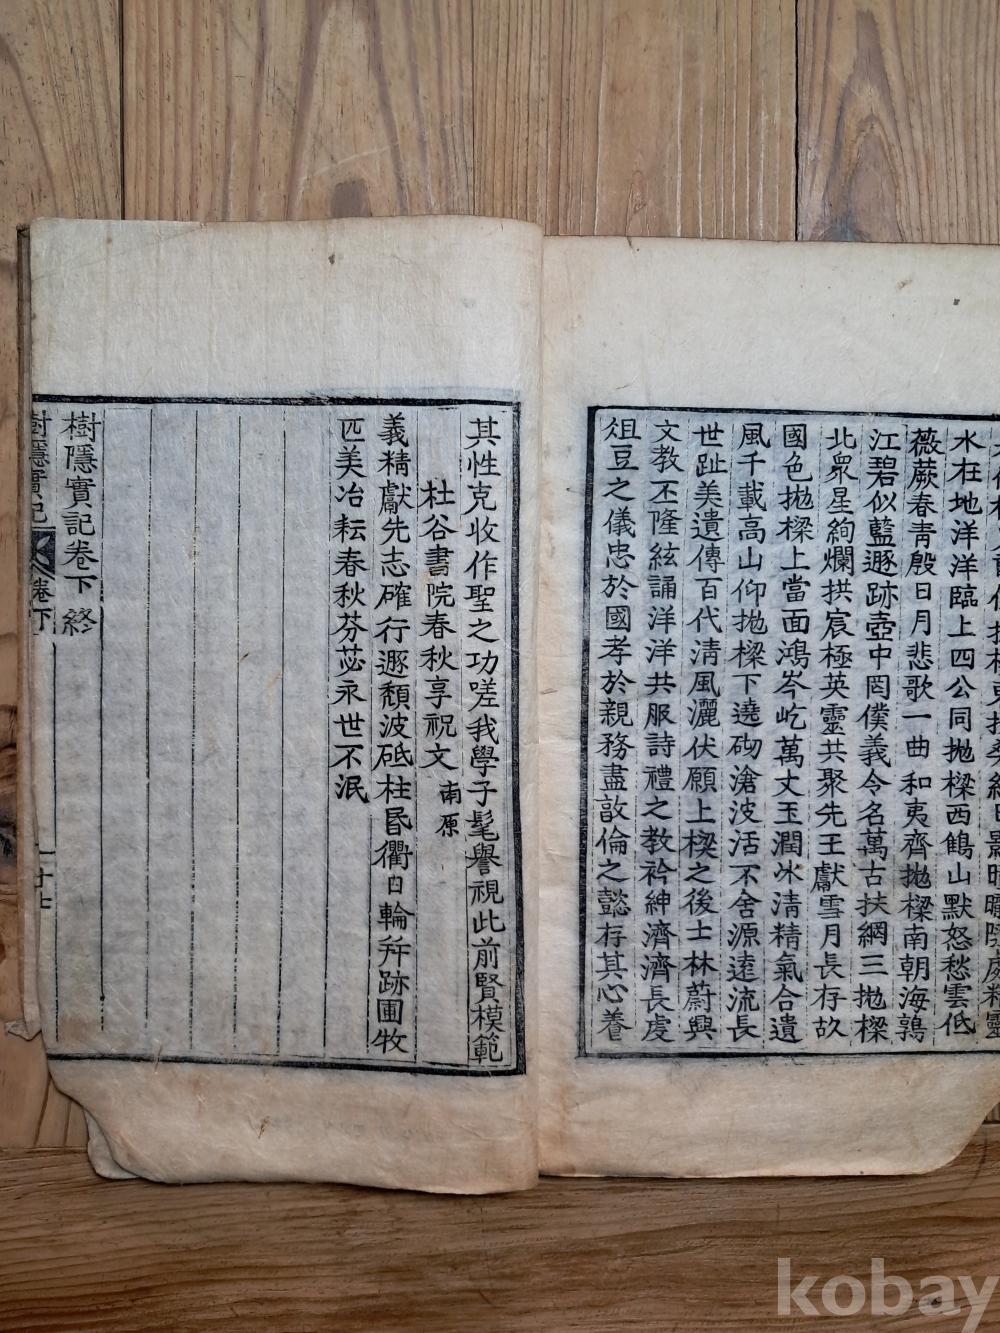 水在地洋洋臨上四公同拋樑西鶴山默怒愁雲低
薇蕨春靑殷日月悲歌一曲和夷齊拋樑南朝海鶉
江碧似藍遯跡壺中罔僕義令名萬古扶綱三拋樑
北衆星絢爛拱宸極英靈共聚先王獻雪月長存故
國色拋樑上當面鴻岑屹萬丈玉潤氷淸精氣合遺
風千載高山仰拋樑下遶砌滄波活不舍源遠流長
世趾美遺傳百代淸風灑伏願上樑之後士林蔚興
文教丕隆絃誦洋洋共服詩禮之教衿紳濟濟長虔
俎豆之儀忠於國孝於親務盡敦倫之懿存其心養
其性克收作聖之功嗟我學子髦譽視此前賢模範
杜谷書院春秋享祝文 南原
義精獻先志確行遯頹波砥柱昏衢日輪幷跡圃牧
匹美冶耘春秋芬苾永世不泯
樹隱實記卷下 終
樹隱實記 卷下 十七
kobay